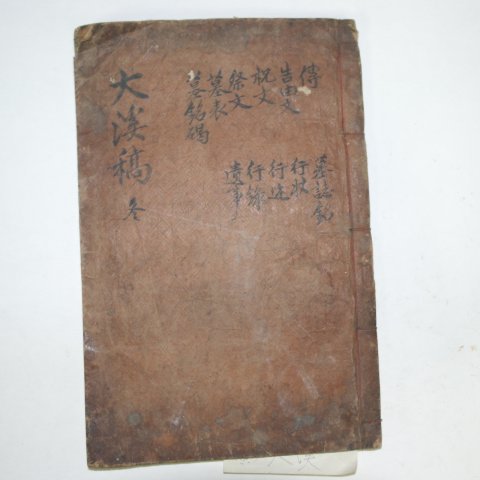 傳
告由文
祝文
祭文
墓表
墓銘碣
墓誌銘
行狀
行述
行錄
遺事
大溪稿
冬